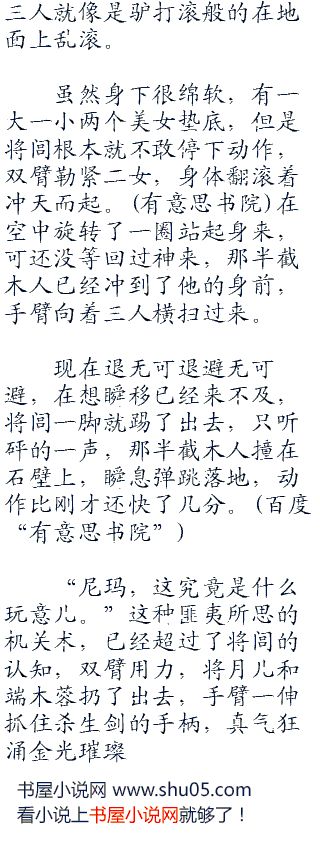 三人就像是驴打滚般的在地
面上乱滚。
虽然身下很绵软，有一
大一小两个美女垫底，但是
将闾根本就不敢停下动作，
双臂勒紧二女，身体翻滚着
冲天而起。(有意思书院)在
空中旋转了一圈站起身来，
可还没等回过神来，那半截
木人已经冲到了他的身前，
手臂向着三人横扫过来。
现在退无可退避无可
避，在想瞬移已经来不及，
将闾一脚就踢了出去，只听
砰的一声，那半截木人撞在
石壁上，瞬息弹跳落地，动
作比刚才还快了几分。(百度
“有意思书院”)
“尼玛，这究竟是什么
玩意儿。”这种匪夷所思的
机关术，已经超过了将闾的
认知，双臂用力，将月儿和
端木蓉扔了出去，手臂一伸
抓住杀生剑的手柄，真气狂
涌金光璀璨
书屋小说网 www.shu05.com
看小说上书屋小说网就够了！